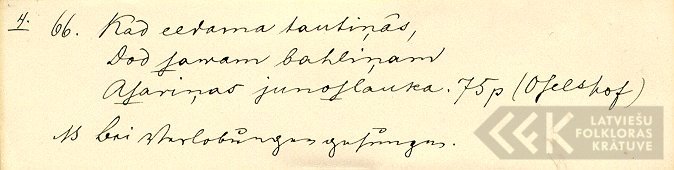 4. 66. Kad eedama tautiņâs,
Dod sawam bahliņam
Asariņas junoslauka. 75p (Oselshof)
NB bei Verlobungen gesungen.
LATVIEŠU
FOLKLORAS
KRĀTUVE